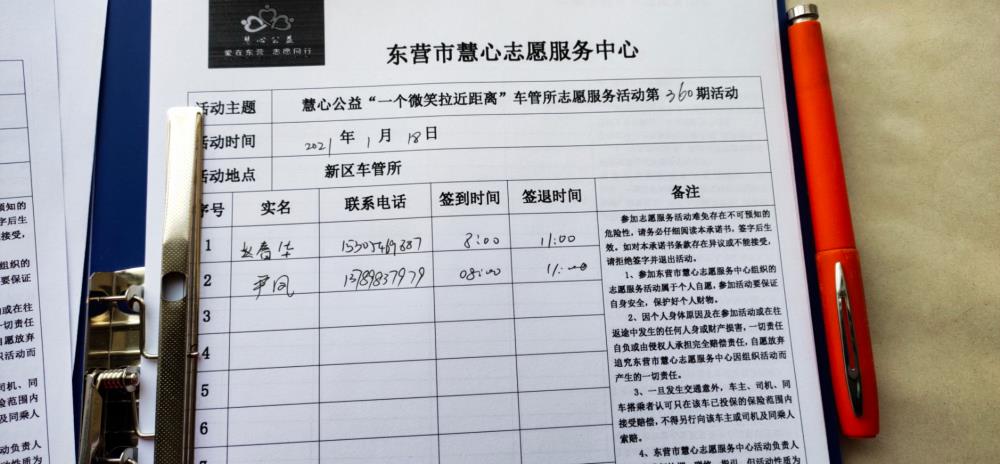 慧心公益
爱在东营 志愿同行
东营市慧心志愿服务中心
活动主题 慧心公益“一个微笑拉近距离”车管所志愿服务活动第360期活动
活动时间 2021年1月18日
活动地点 新区车管所
序号 实名 联系电话 签到时间 签退时间 备注
1 赵春华 8:00 11:00
2 尹凤 13789837979 08:00 11:00
3
4
5
6
参加志愿服务活动难免存在不可预知的
危险性，请务必仔细阅读本承诺书，签字后生
效。如对本承诺书条款存在异议或不能接受，
请拒绝签字并退出活动。
1、参加东营市慧心志愿服务中心组织的
志愿服务活动属于个人自愿，参加活动要保证
自身安全，保护好个人财物。
2、因个人身体原因及在参加活动或在往
返途中发生的任何人身或财产损害，一切责任
自负或由侵权人承担完全赔偿责任，自愿放弃
追究东营市慧心志愿服务中心因组织活动而
产生的一切责任。
3、一旦发生交通意外，车主、司机、同
车搭乘者认可只在该车已投保的保险范围内
接受赔偿，不得另行向该车主或司机及同乘人
索赔。
4、东营市慧心志愿服务中心活动负责人